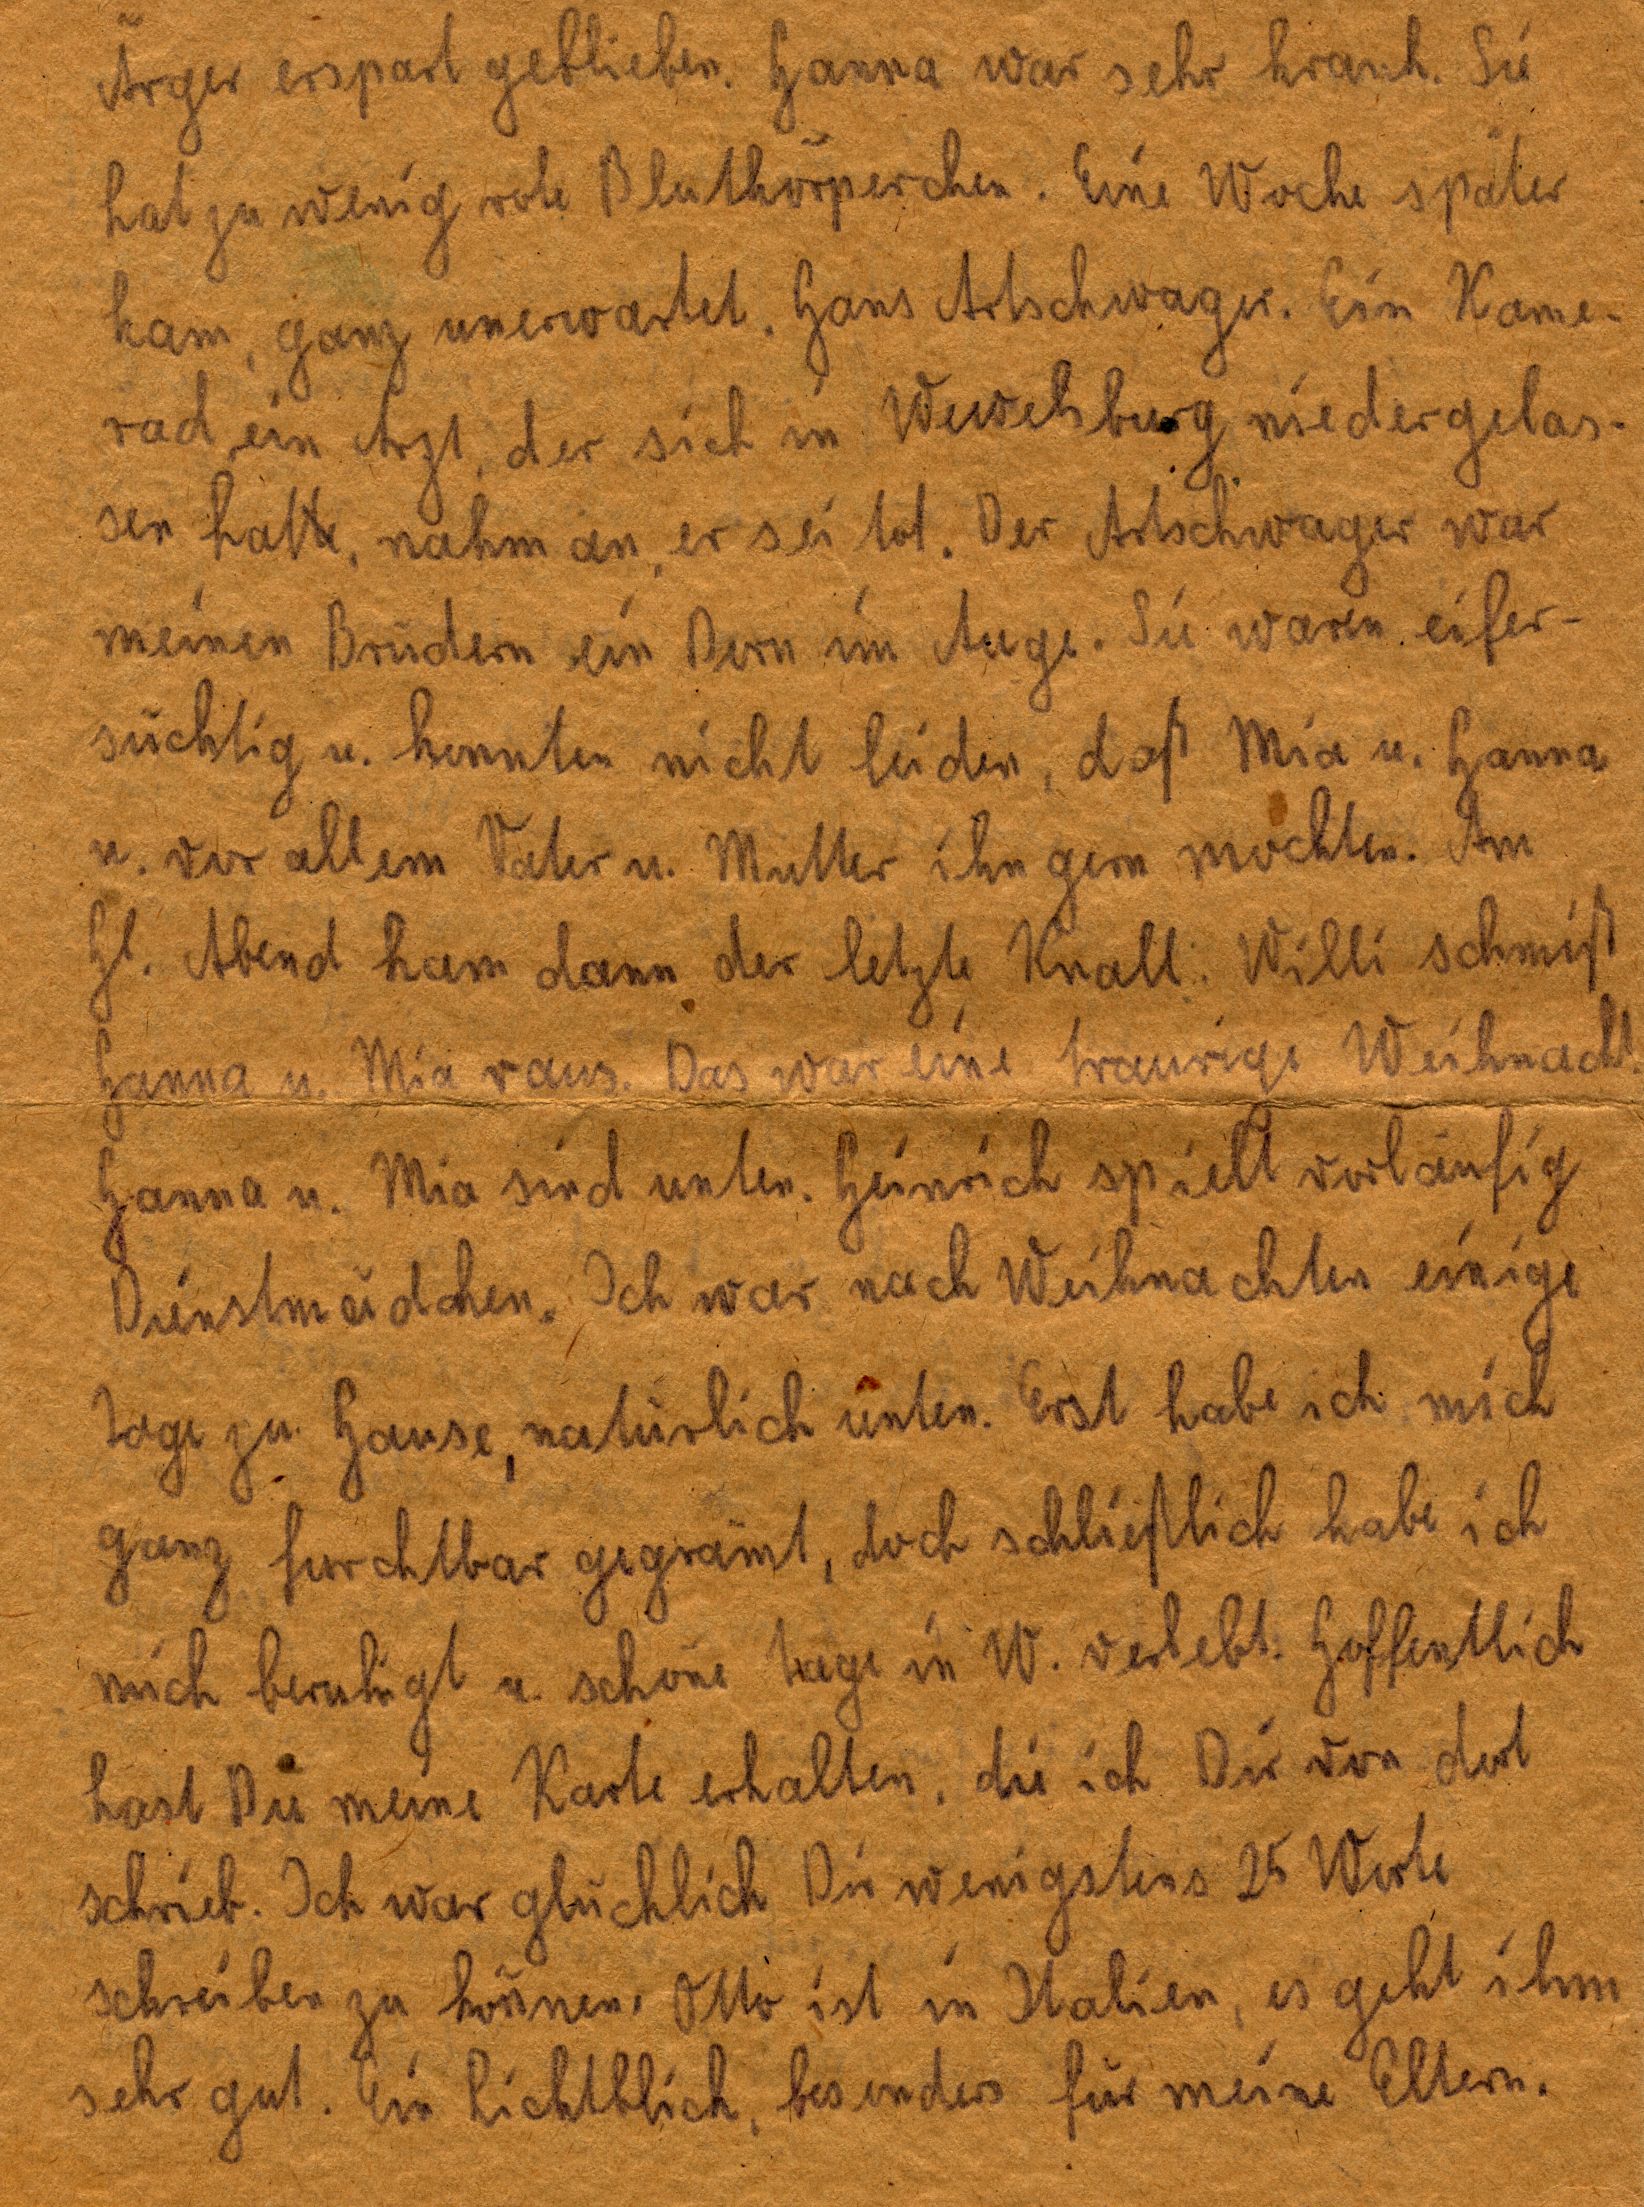 Ärger erspart geblieben. Hanna war sehr krank. Sie
hat zu wenig rote Blutkörperchen. Eine Woche später
kam, ganz unerwartet. Hans Artschwager. Ein Kame-
rad, ein Arzt, der sich in Wewelsburg niedergelas-
sen hatte, nahm an, er sei tot. Der Artschwager war
meinen Brüdern ein Dorn im Auge. Sie waren eifer-
süchtig u. konnten nicht leiden, daß Mia u. Hanna
u. vor allem Vater u. Mutter ihn gern mochten. Am
Hl. Abend kam dann der letzte Knall. Willi schmiß
Hanna u. Mia raus. Das war eine traurige Weihnacht.
Hanna u. Mia sind unten. Heinrich spielt vorläufig
Dienstmädchen. Ich war nach Weihnachten einige
Tage zu Hause, natürlich unten. Erst habe ich mich
ganz furchtbar gegrämt, doch schließlich habe ich
mich beruhigt u. schöne Tage in W. verlebt. Hoffentlich
hast Du meine Karte erhalten, die ich Dir von dort
schrieb. Ich war glücklich Dir wenigstens 25 Worte
schreiben zu können. Otto ist in Italien, es geht ihm
sehr gut. Ein Lichtblick, besonders für meine Eltern.